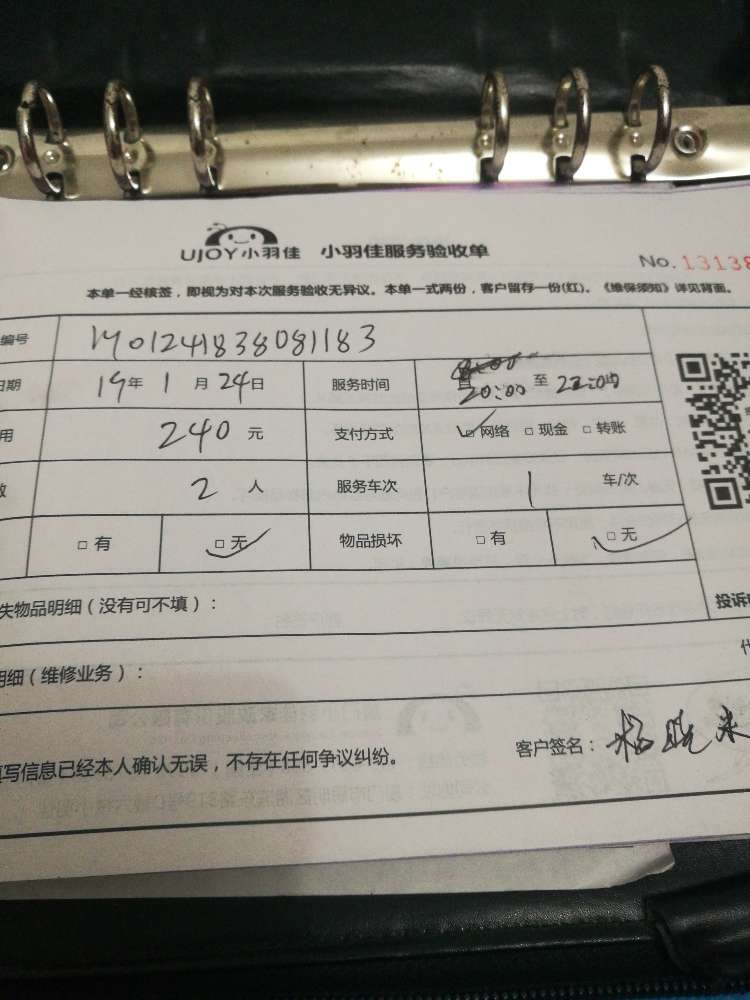 UJOY小羽佳 小羽佳服务验收单
No.13138
本单一经核签，即视为对本次服务验收无异议。本单一式两份，客户留存一份(红)。《维保须知》详见背面。
编号
日期 19年 1 月 24日 服务时间 20:00 至 22:00
用 240 元 支付方式 □网络 □现金 □转账
数 2 人 服务车次 1 车/次
□有 □无 物品损坏 □有 □无
失物品明细（没有可不填）：
投诉
明细（维修业务）：
填写信息已经本人确认无误，不存在任何争议纠纷。 客户签名：